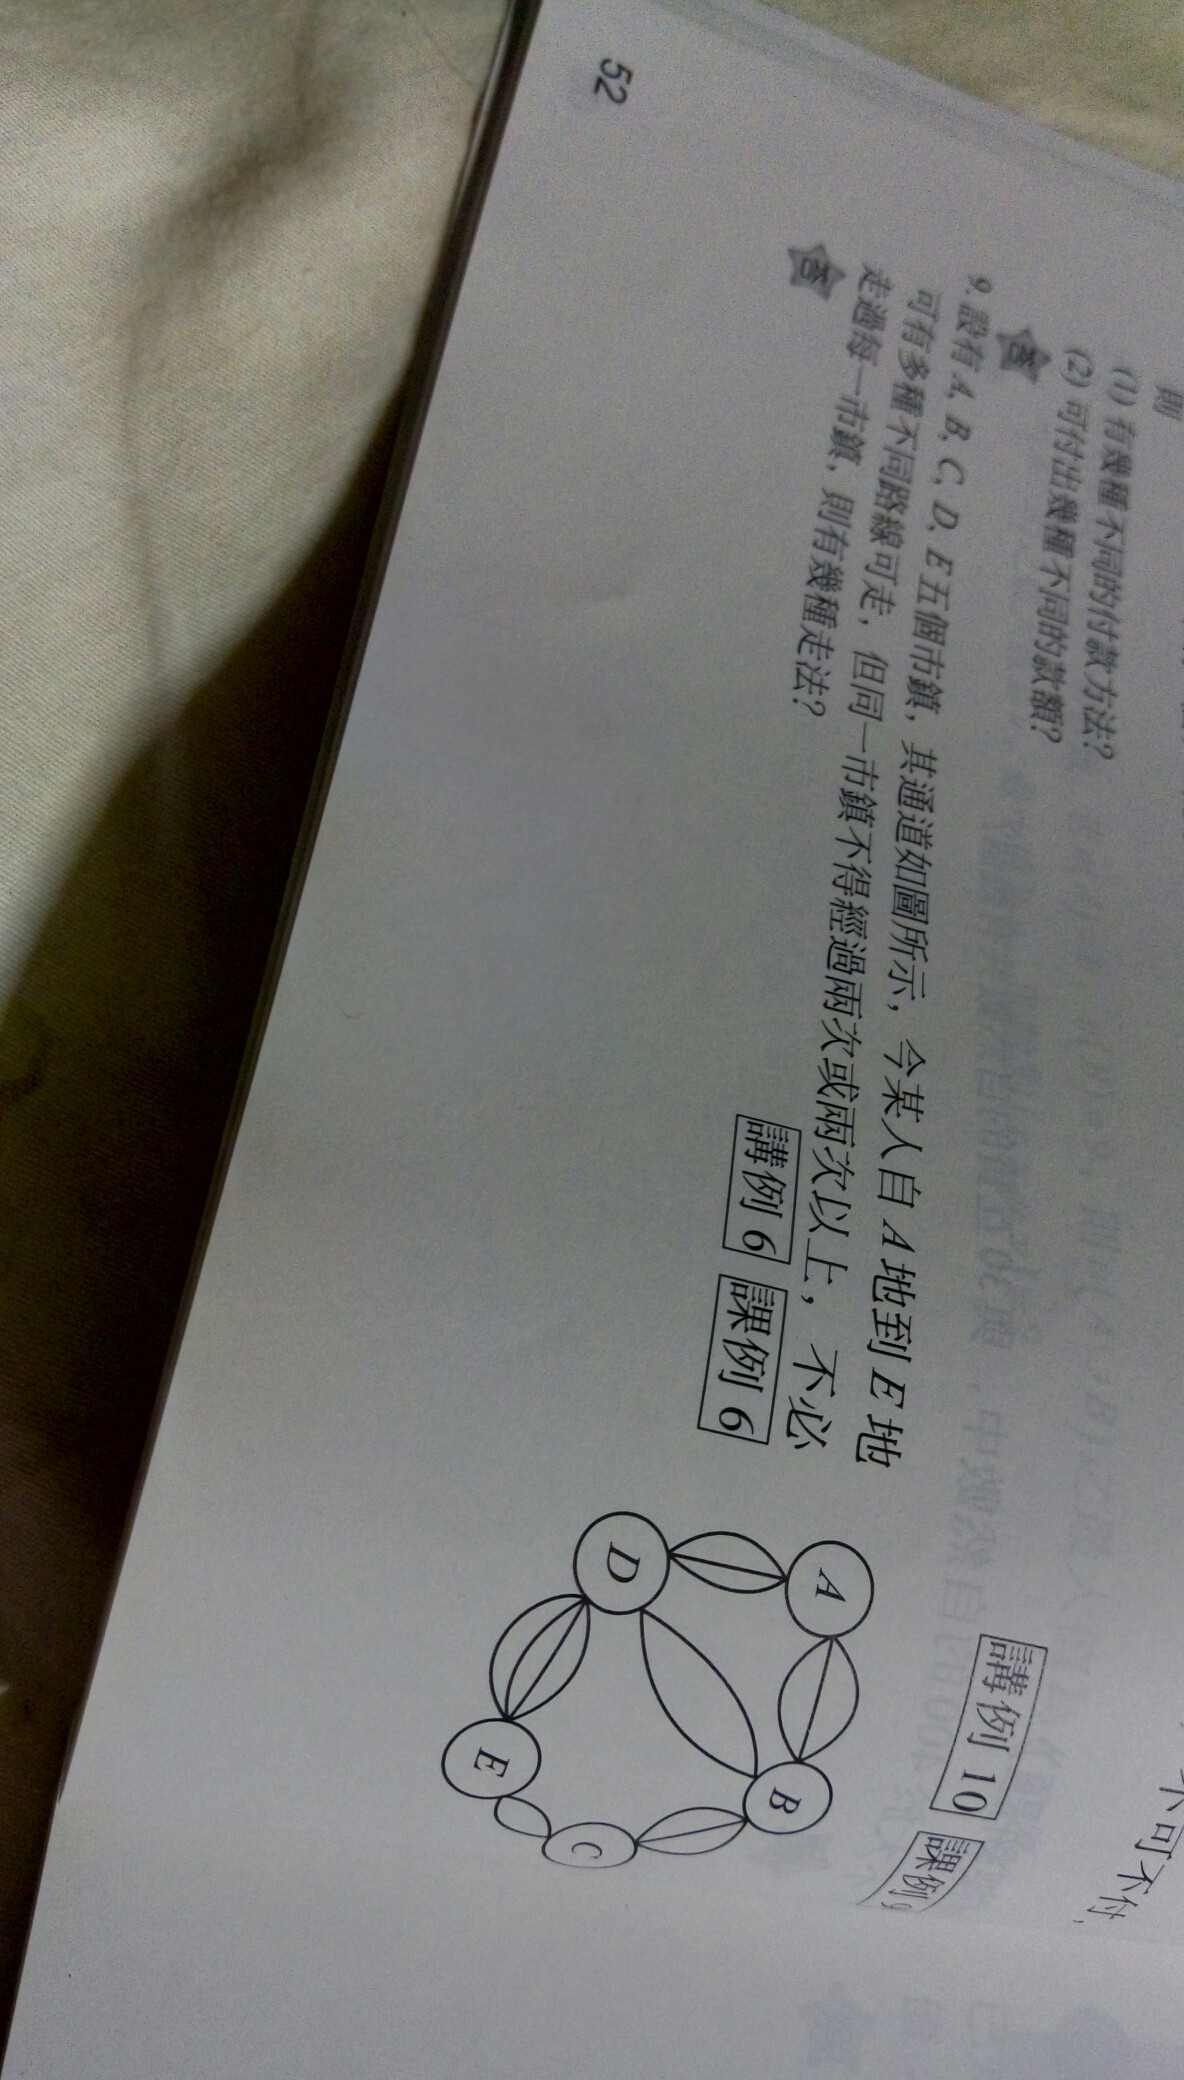 則
(1) 有幾種不同的付款方法?
(2) 可付出幾種不同的款額?
不可不付,
答
講例 10 課例 9
9. 設有 A, B, C, D, E 五個市鎮, 其通道如圖所示, 今某人自 A 地到 E 地
可有多種不同路線可走, 但同一市鎮不得經過兩次或兩次以上, 不必
走過每一市鎮, 則有幾種走法?
講例 6 課例 6
答
A
B
C
D
E
52